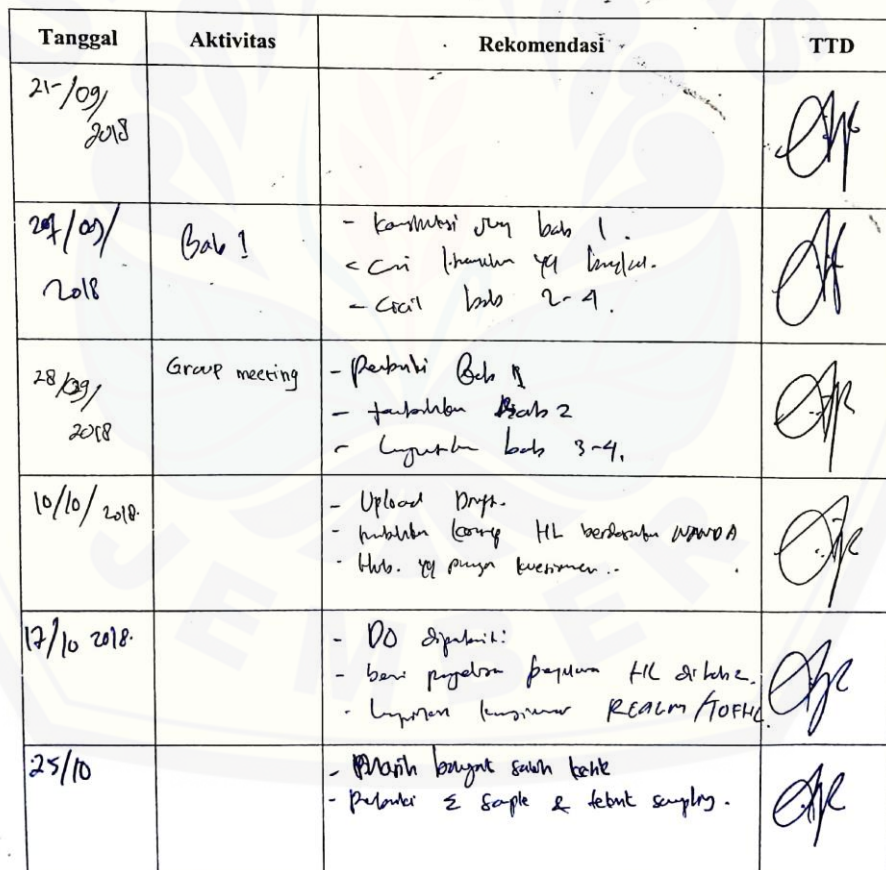 Tanggal Aktivitas Rekomendasi TTD
21/09/
2018
27/09/
2018
Bab 1
- Konsultasi bab 1.
- Cari yg
- Cicil bab 2-4.
28/09/
2018
Group meeting
- Perbaiki Bab 1
- tambahkan Bab 2
- bab 3-4.
10/10/2018.
- Upload Draft.
- tambahkan konsep HL berdasarkan NANDA
- Hub. yg punya kuesioner..
17/10 2018.
- DO diperbaiki:
- beri HL di bab 2.
- kuesioner REALM/TOFHL
25/10
- Masih banyak salah ketik
- Perbaiki Σ sample & teknik sampling.
JEMBER